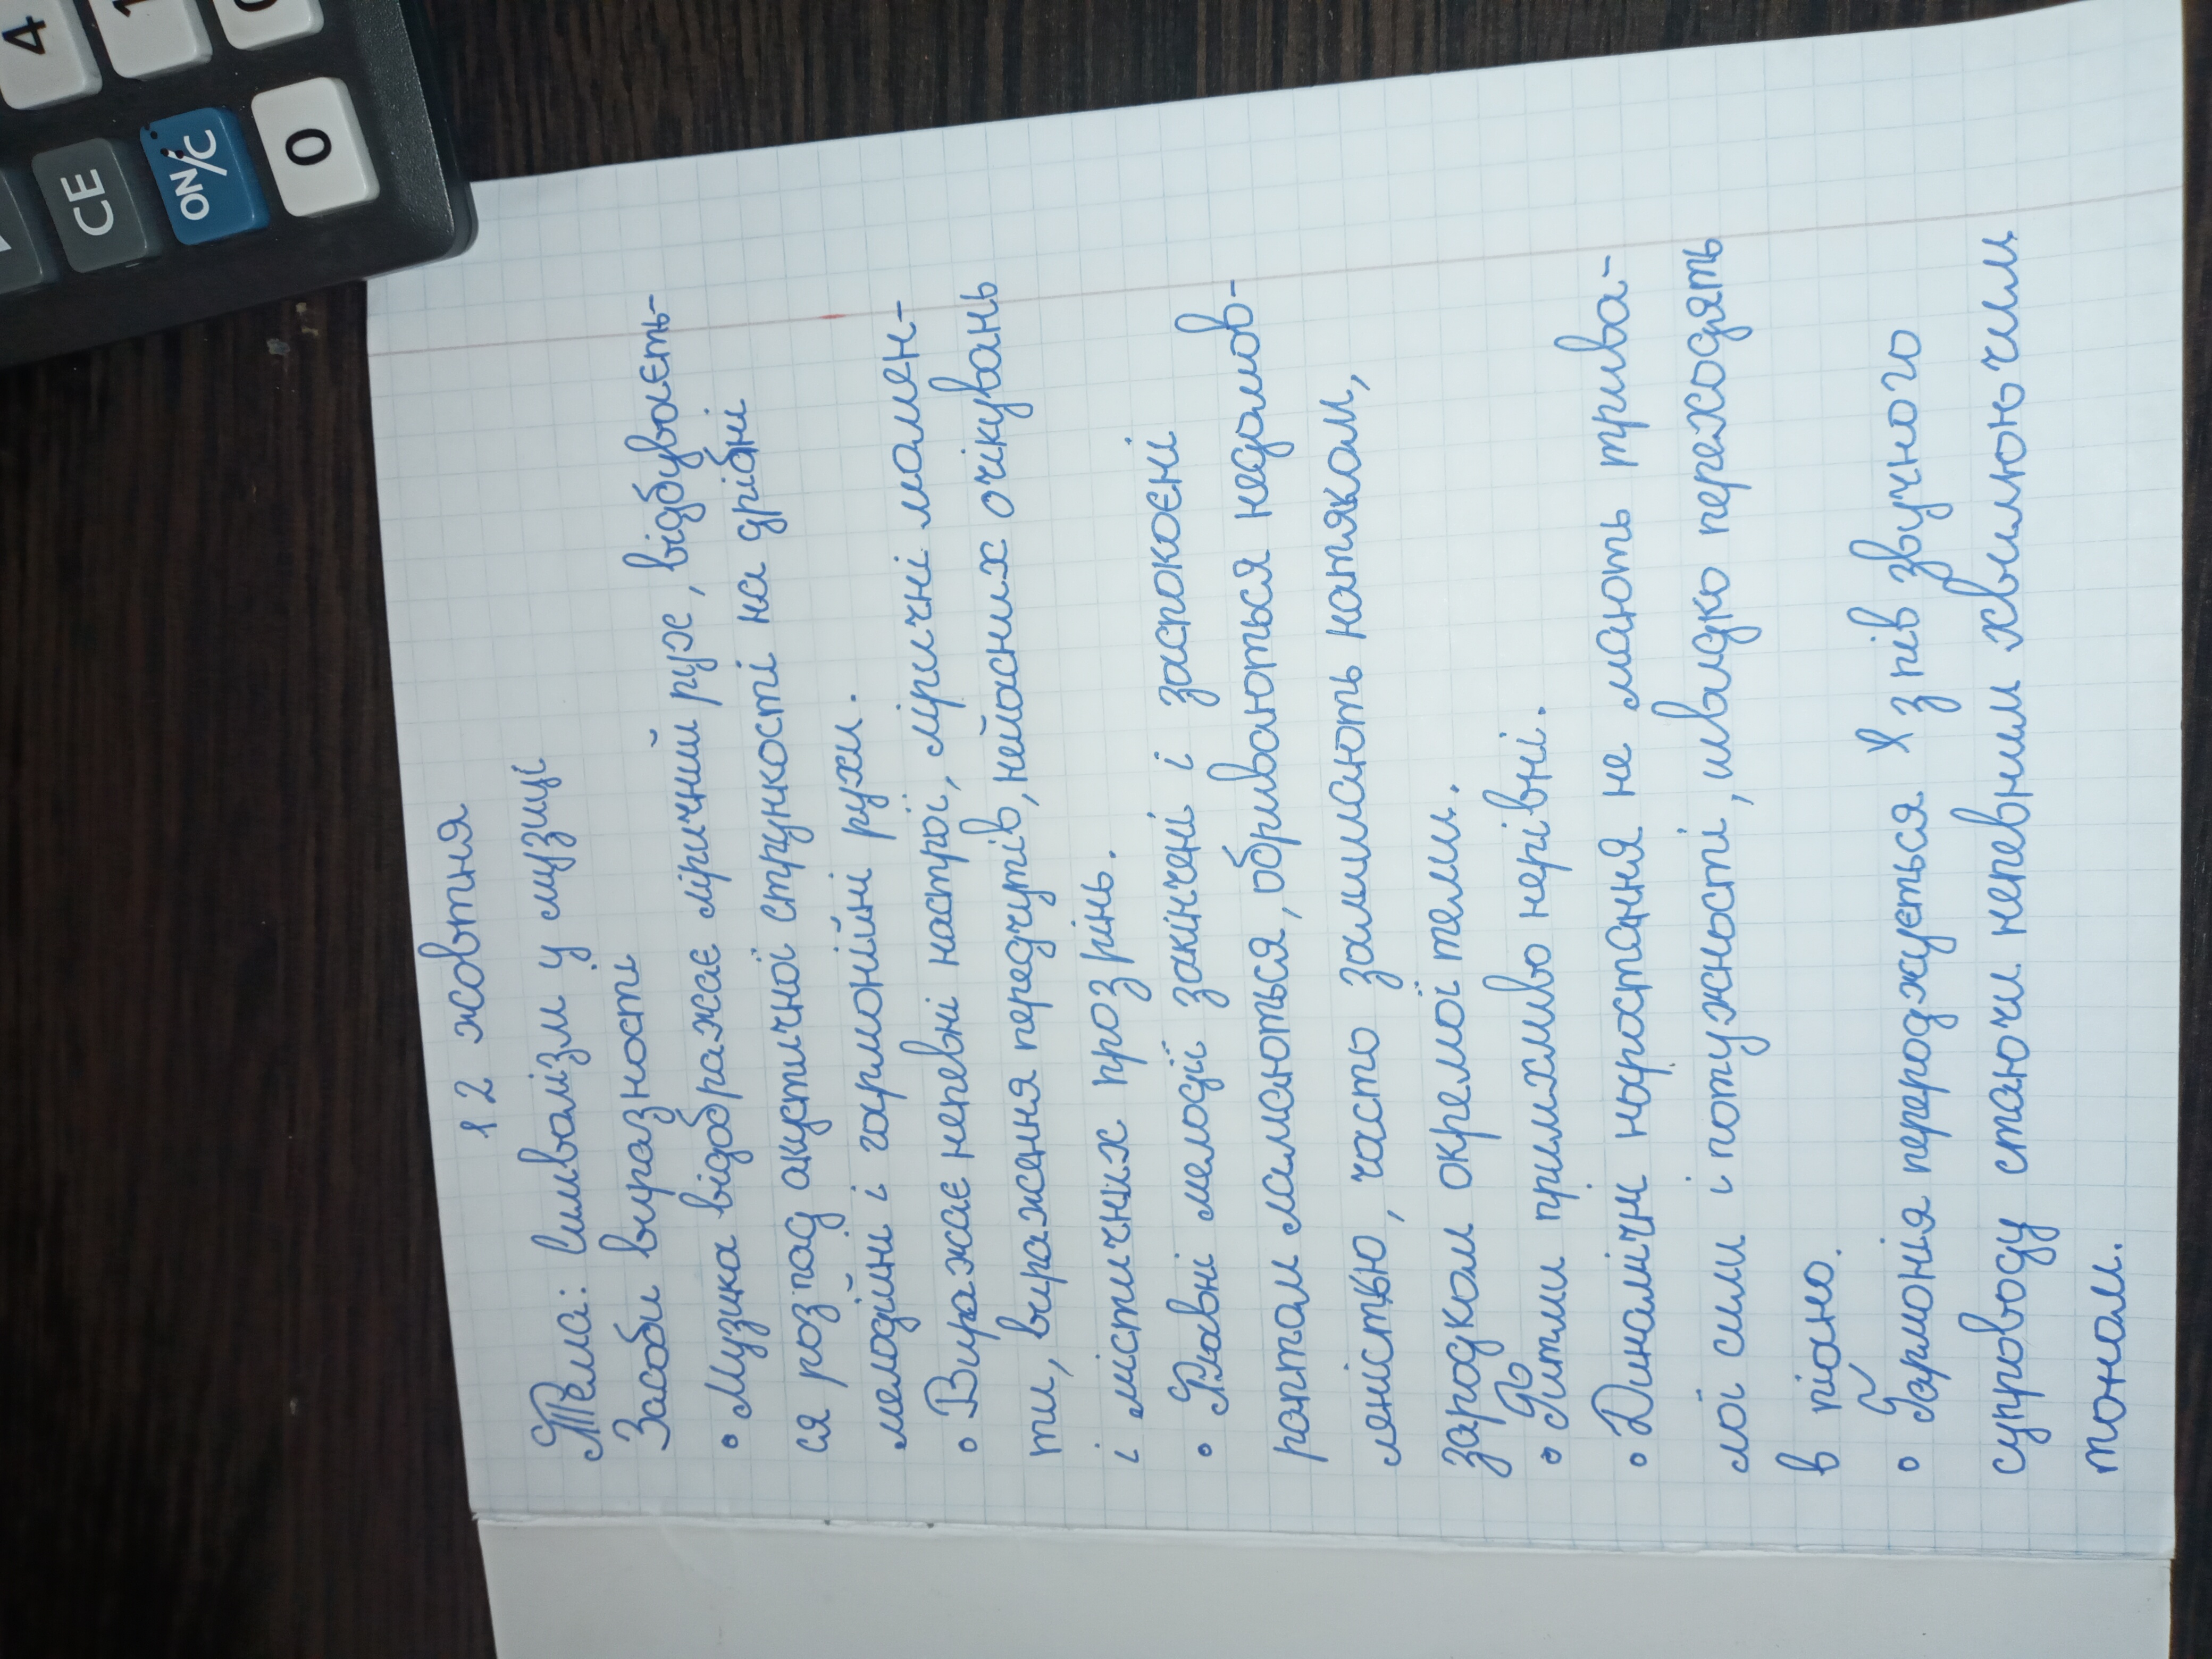 12 жовтня
Тема: Символізм у музиці
Засоби виразності
• Музика відображає ліричний рух, відбуваєть-
ся розпад акустичної стрункості на дрібні
мелодійні і гармонійні рухи.
• Виражає непевні настрої, ліричні момен-
ти, вираження передчутів, неясних очікувань
і містичних прозрінь.
• Плавні мелодії закінчені і заспокоєні
раптом ламаються, обриваються недомов-
леністью, часто залишають натяком,
зародком окремої теми.
• Ритми примхливо нерівні.
• Динамічні наростання не мають трива-
лої сили і потужності, швидко переходять
в піано.
• Гармонія перероджується з пів звучного
супроводу стаючи непевним хвилюючим
тоном.
4
1
0
CE
ON/C
0